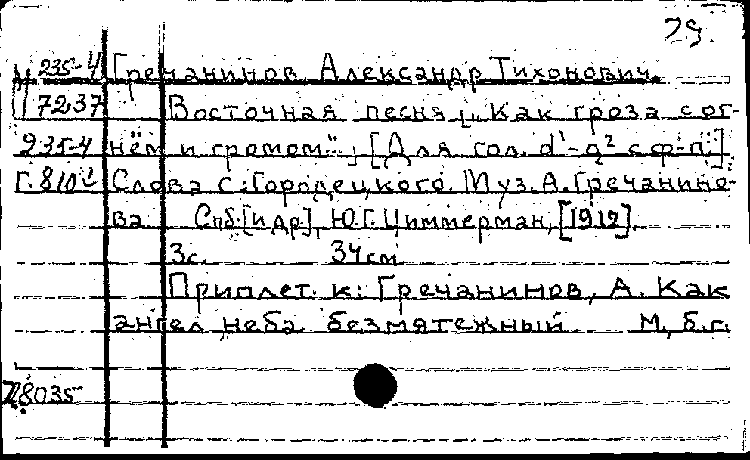 29.
М 235-4 Гречанинов Александр Тихонович.
7237 Восточная песня „Как гроза с ог-
235-4 нём и громом“, [Для гол. d¹-g² с ф-п.]
Г. 810 Слова С. Городецкого. Муз. А. Гречанино-
ва Спб. [и др], Ю.Г. Циммерман, [1912].
3с. 34см
Приплет. к: Гречанинов, А. Как
ангел неба безмятежный М, б.г.
28035